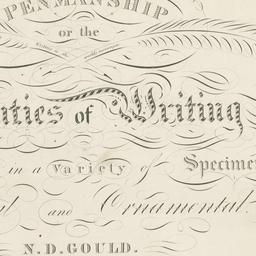 PENMANSHIP
or the
nties of Writing
in a Variety of Specime
and Ornamental.
N.D.GOULD.